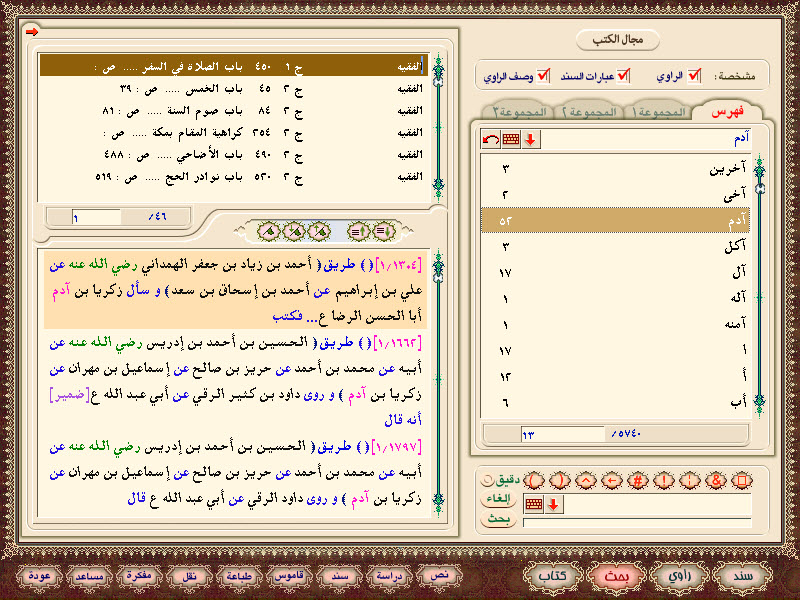 مجال الكتب
مشخصة: الراوي عبارات السند وصف الراوي
فهرس المجموعة ١ المجموعة ٢ المجموعة ٣
آدم
آخرين ٣
آخى ٢
آدم ٥٢
آكل ٣
آل ١٧
آله ١
آمنه ١
ا ١٧
أ ١٢
أب ٦
١٣ /٥٧٤٠
دقيق ( ) ^ ← # ! ¦ &
إلغاء
بحث
الفقيه ج ١ ٤٥٠ باب الصلاة في السفر ..... ص :
الفقيه ج ٢ ٤٥ باب الخمس ..... ص : ٣٩
الفقيه ج ٢ ٨٤ باب صوم السنة ..... ص : ٨١
الفقيه ج ٢ ٢٥٤ كراهية المقام بمكة ..... ص :
الفقيه ج ٢ ٤٩٠ باب الأضاحي ..... ص : ٤٨٨
الفقيه ج ٢ ٥٢٠ باب نوادر الحج ..... ص : ٥١٩
١ /٤٦
[١/١٣٠٤]( ) طريق( أحمد بن زياد بن جعفر الهمداني رضي الله عنه عن
علي بن إبراهيم عن أحمد بن إسحاق بن سعد) و سأل زكريا بن آدم
أبا الحسن الرضا ع... فكتب
[١/١٦٦٢]( ) طريق( الحسين بن أحمد بن إدريس رضي الله عنه عن
أبيه عن محمد بن أحمد عن حريز بن صالح عن إسماعيل بن مهران عن
زكريا بن آدم ) و روى داود بن كثير الرقي عن أبي عبد الله ع[ضمير]
أنه قال
[١/١٧٩٧]( ) طريق( الحسين بن أحمد بن إدريس رضي الله عنه عن
أبيه عن محمد بن أحمد عن حريز بن صالح عن إسماعيل بن مهران عن
زكريا بن آدم ) و روى داود الرقي عن أبي عبد الله ع قال
سند راوي بحث كتاب نص دراسة سند قاموس طباعة نقل مفكرة مساعد عودة